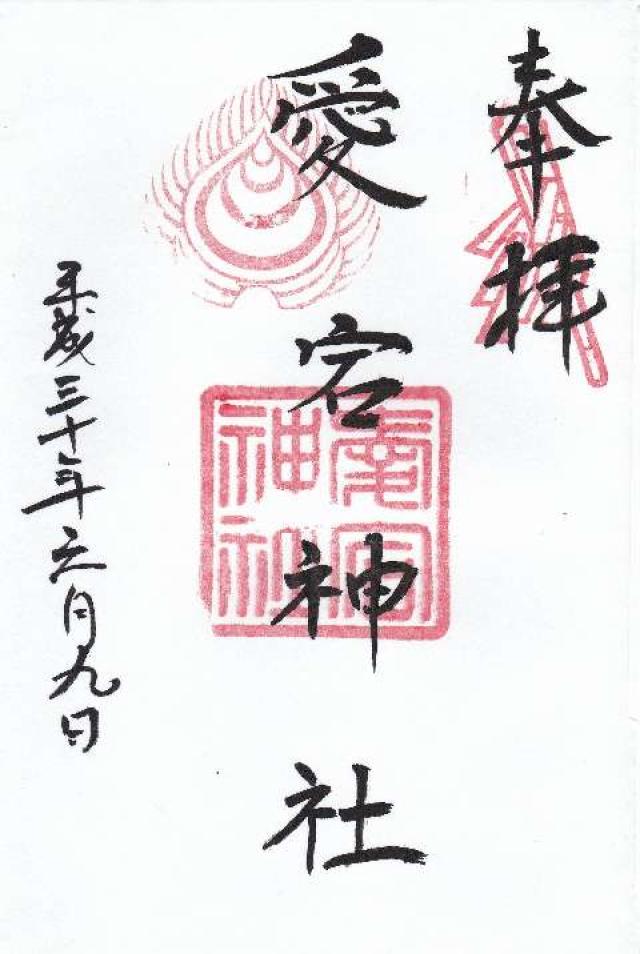 奉拝
愛宕神社
愛宕神社
平成三十年六月九日